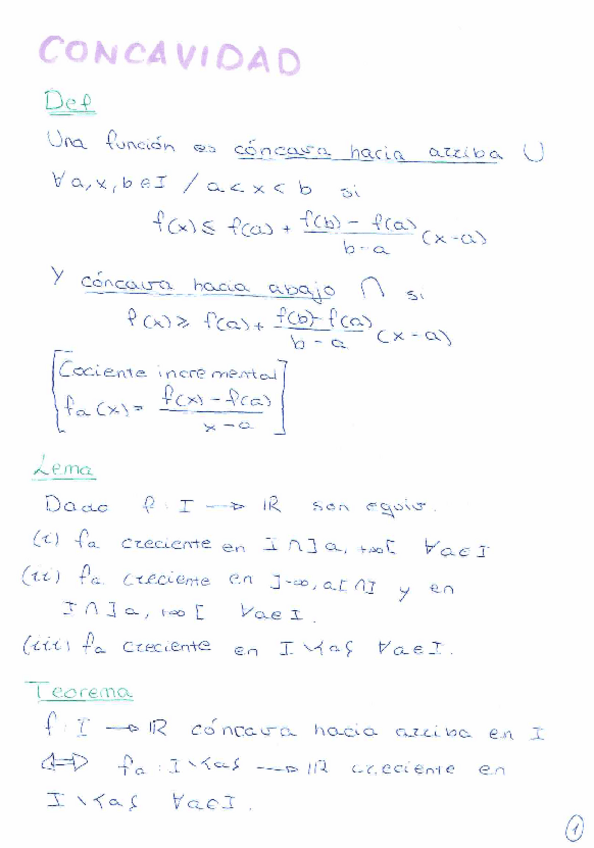 CONCAVIDAD
Def
Una función es cóncava hacia arriba ∪
∀a,x,b∈I / a<x<b si
f(x) ≤ f(a) + (f(b) - f(a))/(b-a) (x-a)
Y cóncava hacia abajo ∩ si
f(x) ≥ f(a) + (f(b)-f(a))/(b-a) (x-a)
[Cociente incremental
fa(x) = (f(x) - f(a))/(x-a)]
Lema
Dado f: I → ℝ son equiv.
(i) fa creciente en I∩]a,+∞[ ∀a∈I
(ii) fa creciente en ]-∞,a[∩I y en
I∩]a,+∞[ ∀a∈I.
(iii) fa creciente en I\{a} ∀a∈I.
Teorema
f: I → ℝ cóncava hacia arriba en I
⇔ fa: I\{a} → ℝ creciente en
I\{a} ∀a∈I.
1